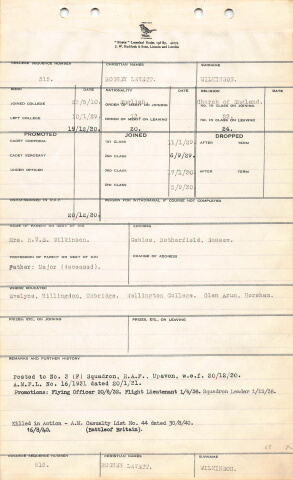 J. W. Ruddock & Sons, Lincoln and London
SEQUENCE NUMBER CHRISTIAN NAME SURNAME
515. RODNEY LEVETT. WILKINSON.
DATE NATIONALITY RELIGION
JOINED COLLEGE English. Church of England.
ORDER OF MERIT ON JOINING NO. IN CLASS ON JOINING
LEFT COLLEGE
ORDER OF MERIT ON LEAVING NO. IN CLASS ON LEAVING
19/12/30. 20. 24.
PROMOTED JOINED DROPPED
CADET CORPORAL 1ST CLASS 11/1/29. AFTER TERM
CADET SERGEANT 2ND CLASS 6/9/29. AFTER TERM
UNDER OFFICER 3RD CLASS 17/1/30.
2ND CLASS
5/9/30
20/12/30.
REASON FOR WITHDRAWAL IF COURSE NOT COMPLETED
NAME OF PARENT OR NEXT OF KIN ADDRESS
Mrs. Wilkinson. Gables, Rotherfield, Sussex.
PROFESSION OF PARENT OR NEXT OF KIN CHANGE OF ADDRESS
Father: Major (deceased).
WHERE EDUCATED
Evelyns, Hillingdon, Uxbridge. Wellington College. Glen Arun, Horsham.
PRIZES, ETC., ON JOINING PRIZES, ETC., ON LEAVING
REMARKS AND FURTHER HISTORY
Posted to No. 3 (F) Squadron, R.A.F., Upavon, w.e.f. 20/12/30.
A.M.P.L. No. 16/1931 dated 20/1/31.
Promotions: Flying Officer 20/6/32. Flight Lieutenant 1/4/36. Squadron Leader
Killed in Action - A.M. Casualty List No. 44 dated 30/8/40.
16/8/40. (Battle of Britain).
SEQUENCE NUMBER CHRISTIAN NAMES SURNAME
515. RODNEY LEVETT. WILKINSON.